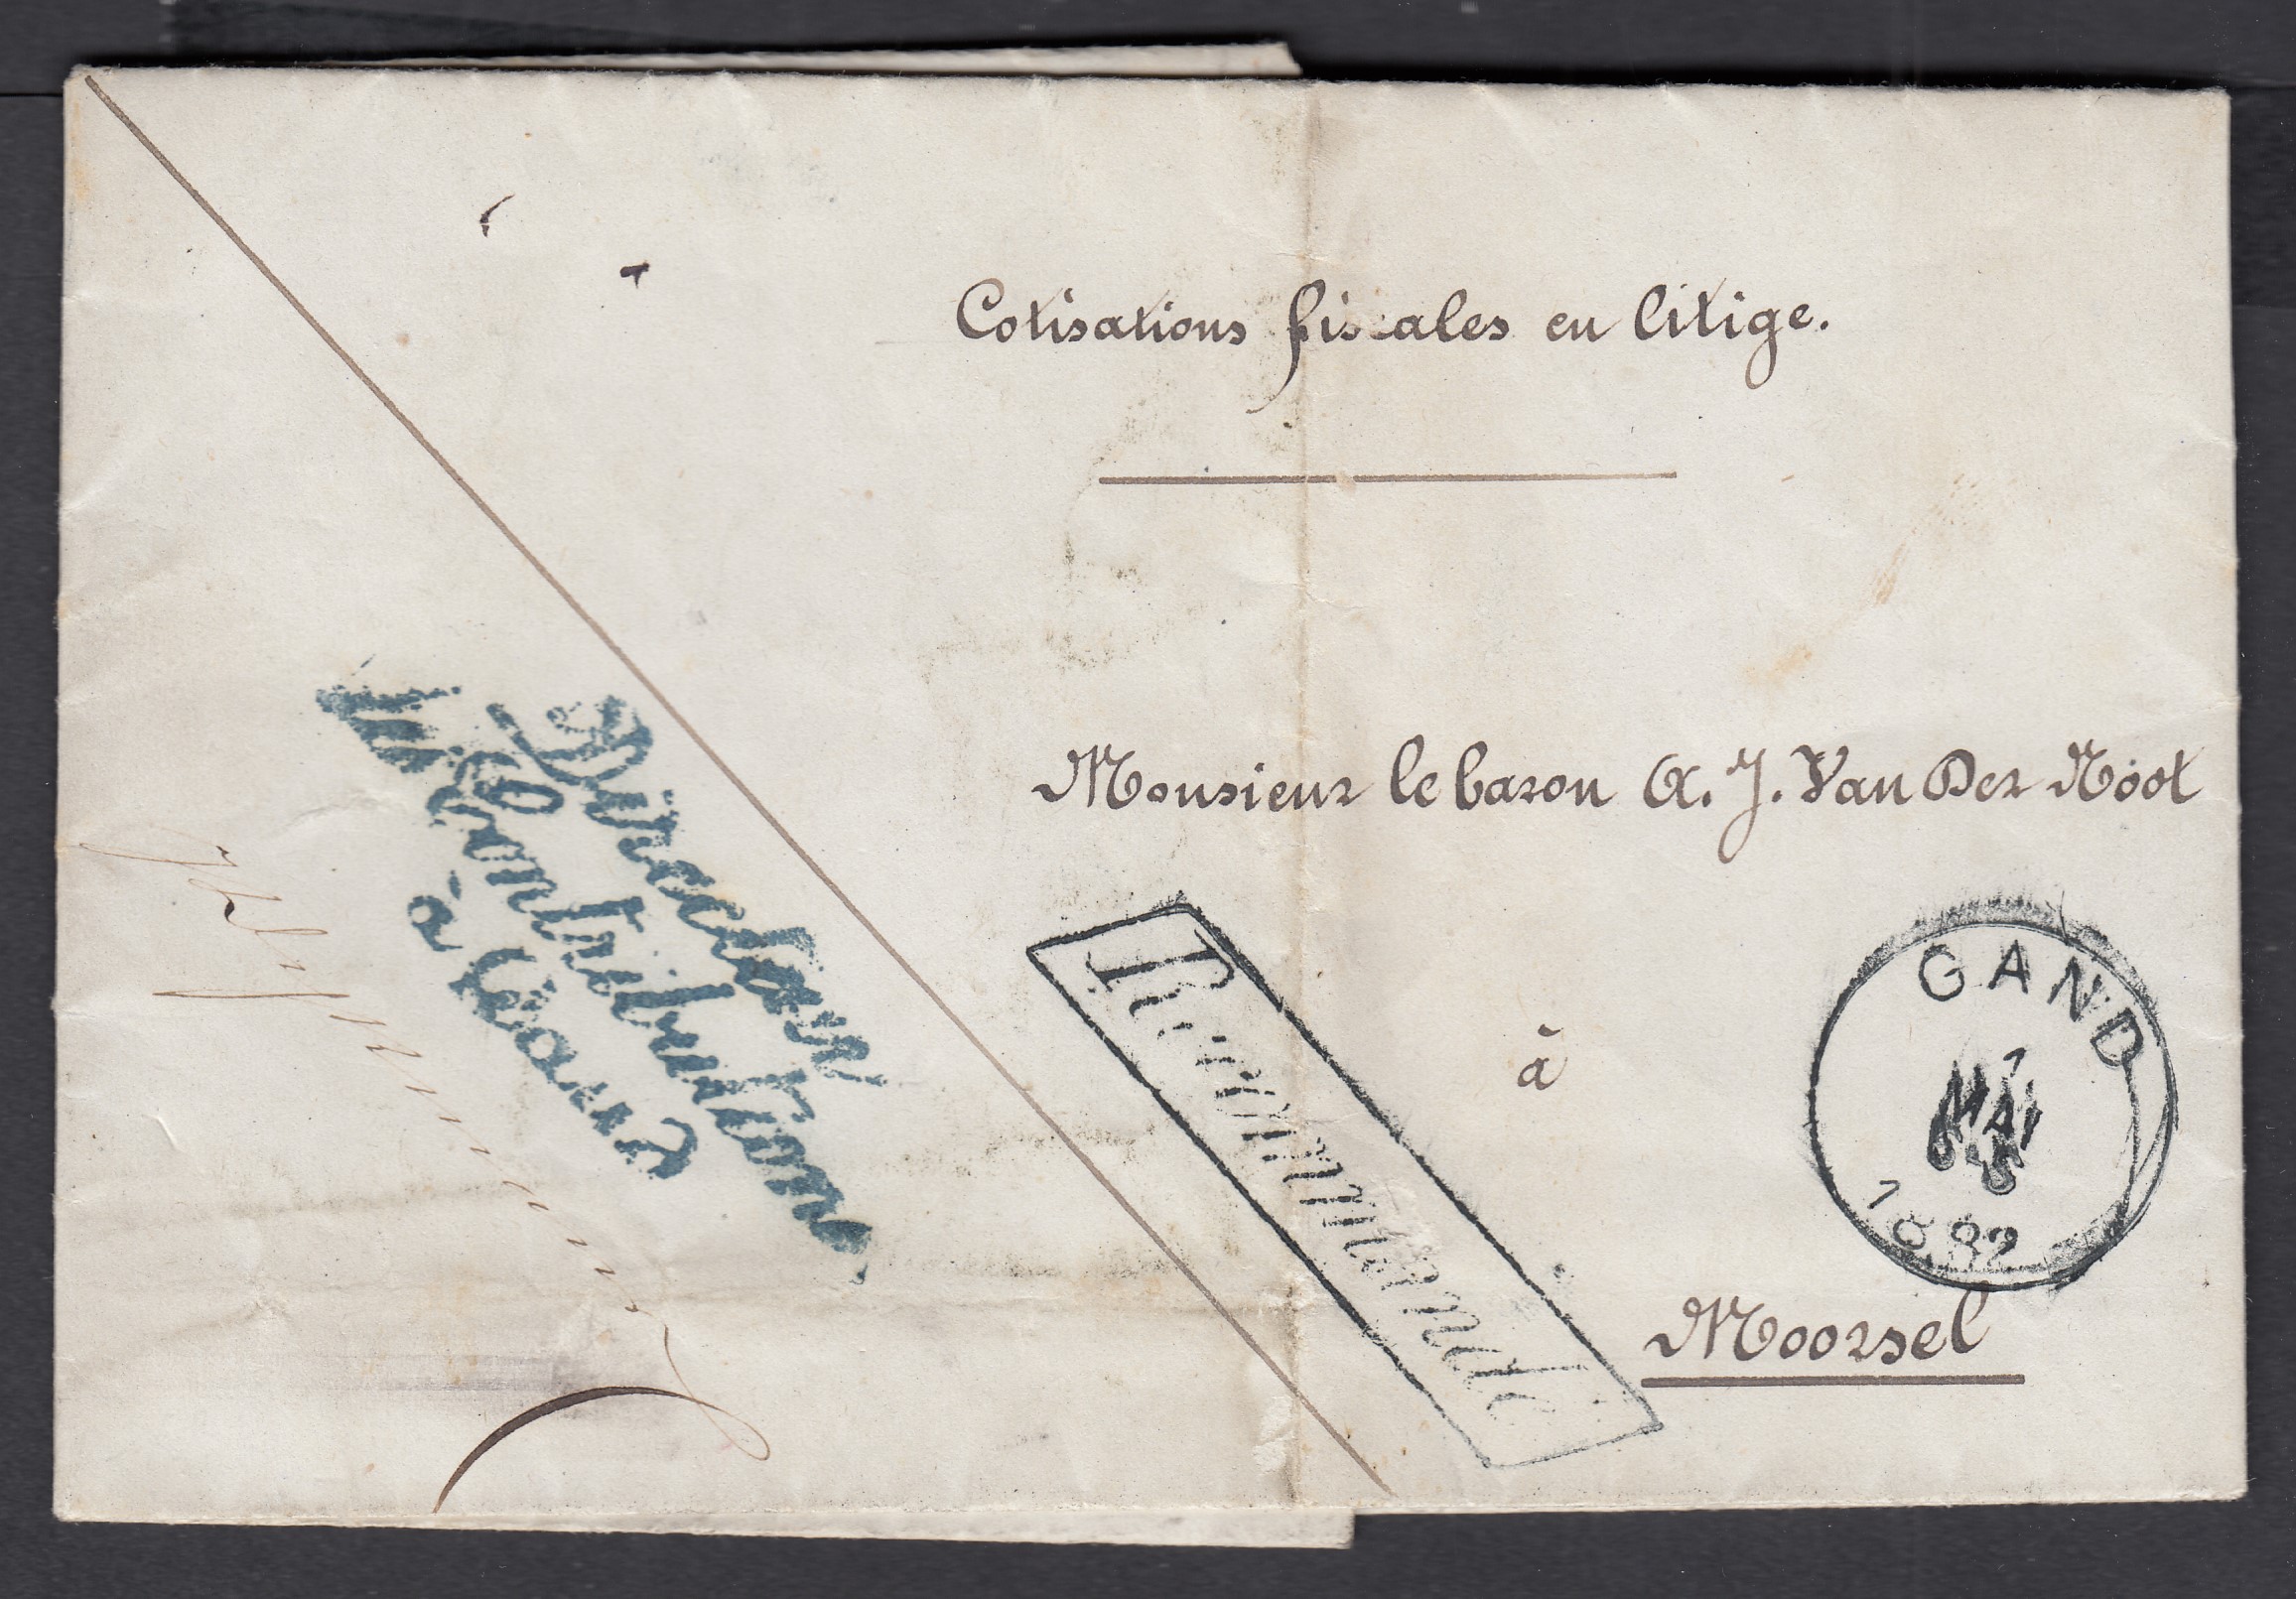 Cotisations fiscales en litige.
Monsieur le baron A. J. Van Der Noot
à
Moorsel
Recommandé
GAND
1
MAI
1882
Directeur
Contributions
à Gand